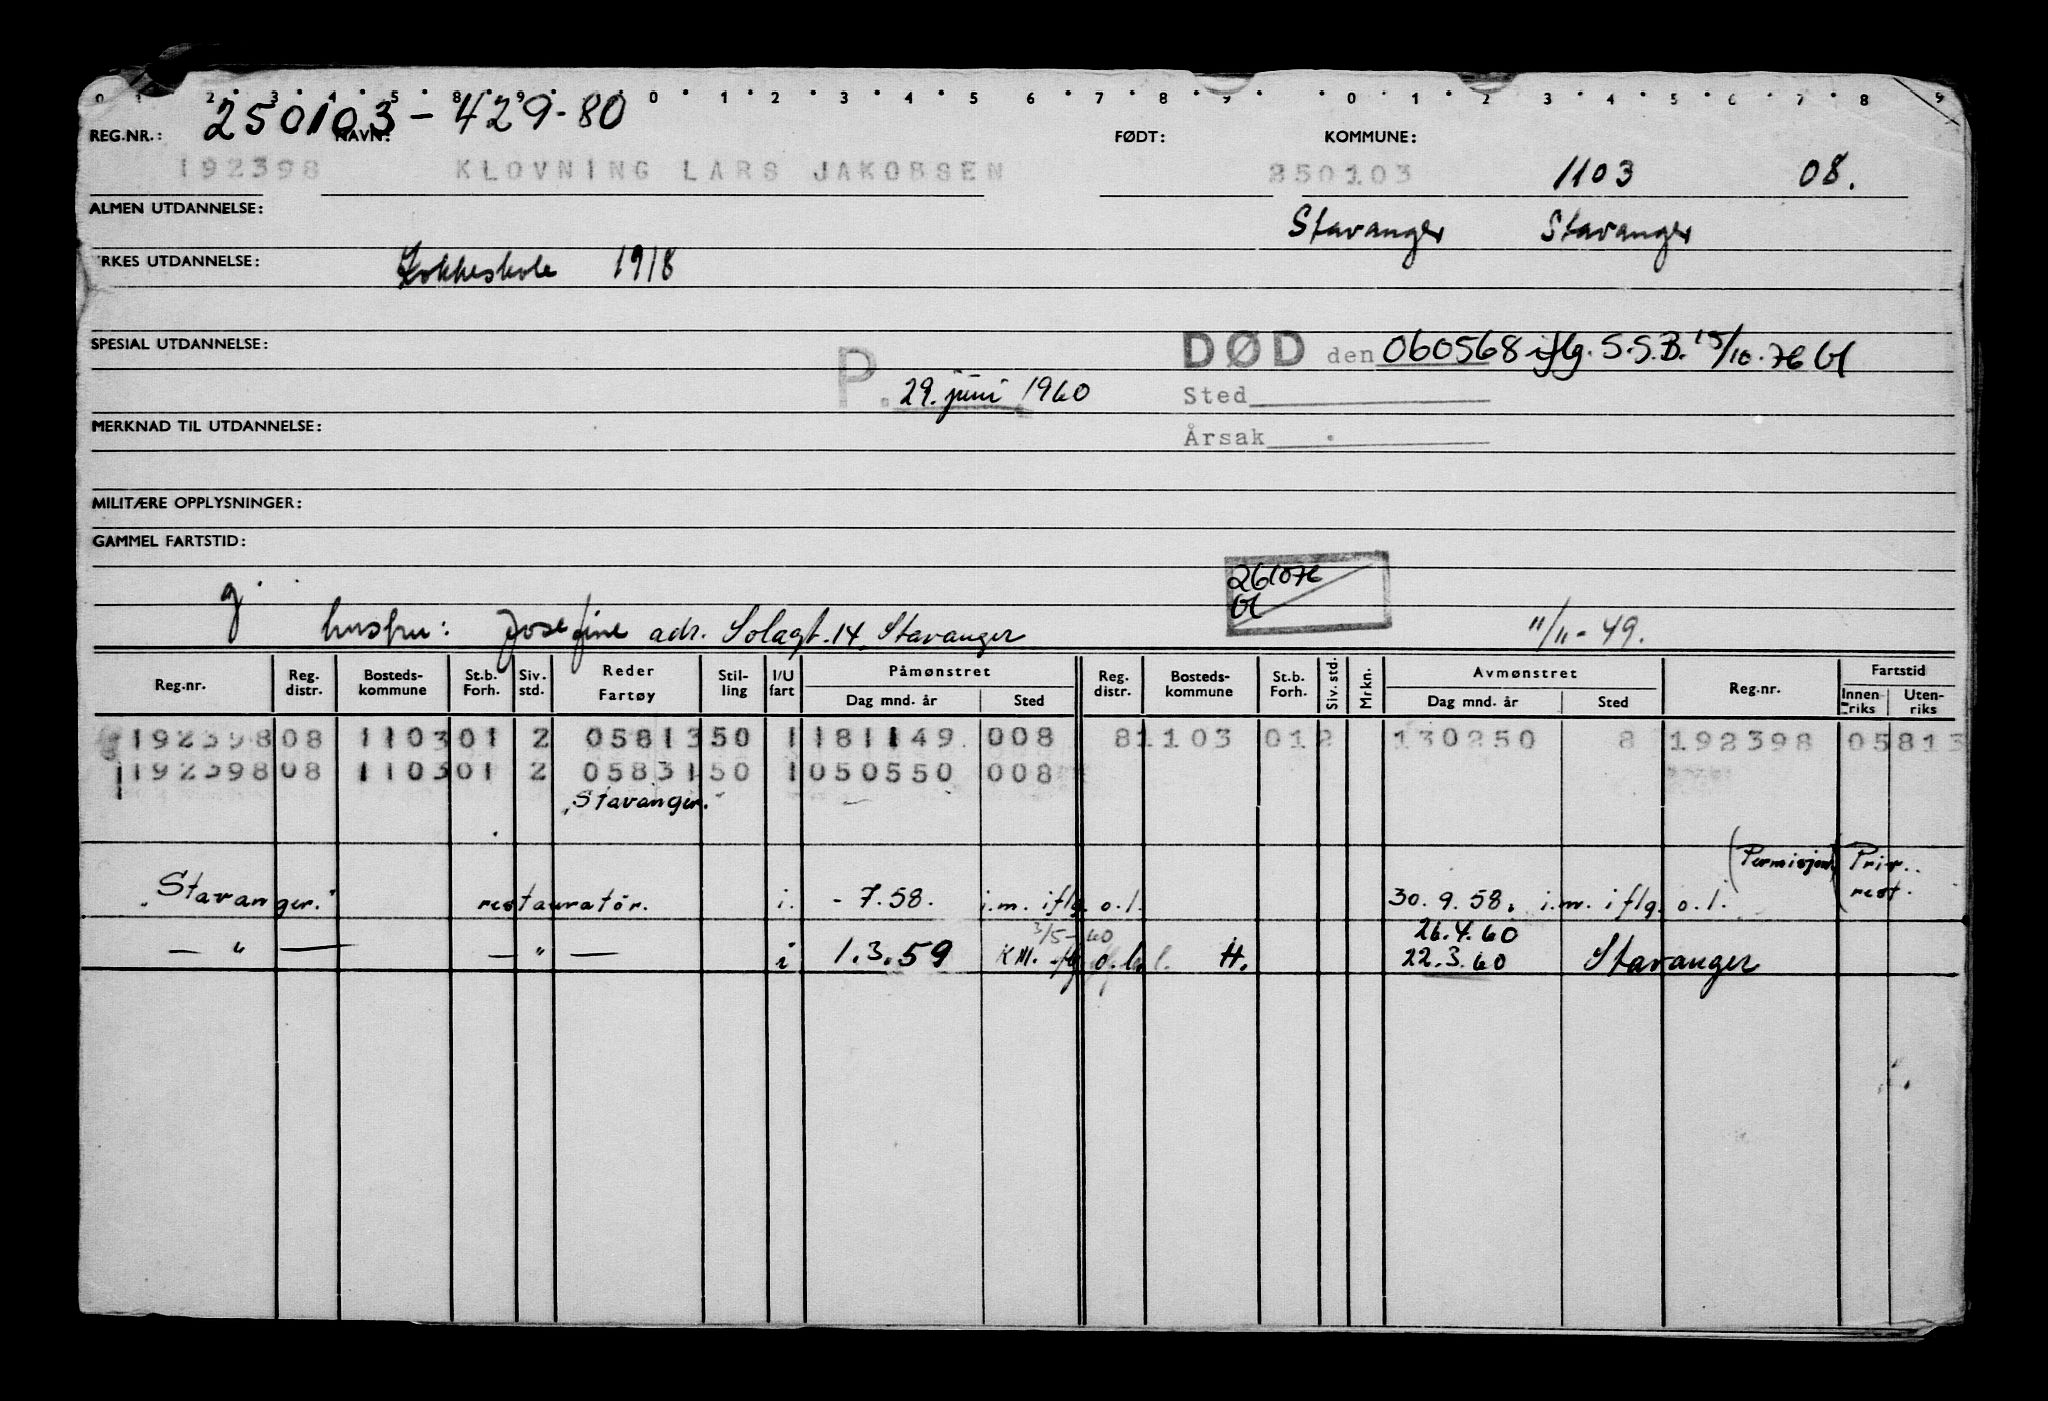 0 1 2 3 4 5 8 9 0 1 2 3 4 5 6 7 8 9 0 1 2 3 4 5 6 7 8 9
REG.NR.: 250103-429-80 NAVN: FØDT: KOMMUNE:
192398 KLOVNING LARS JAKOBSEN 250103 1103 08.
ALMEN UTDANNELSE: Stavanger Stavanger
RKES UTDANNELSE: Kokkeskole 1918
SPESIAL UTDANNELSE: DØD den 060568 iflg. S.S.B. 15/10.76
P. 29. juni 1960 Sted
MERKNAD TIL UTDANNELSE: Årsak
MILITÆRE OPPLYSNINGER:
GAMMEL FARTSTID:
261076
g.
hustru: Josefine adr. Solagt. 14, Stavanger 11/11-49.
Reg.nr. Reg. distr. Bosteds-kommune St.b. Forh. Siv. std. Reder Fartøy Stil-ling I/U fart Påmønstret Dag mnd. år Sted Reg. distr. Bosteds-kommune St.b. Forh. Siv. std. Mrkn. Avmønstret Dag mnd. år Sted Reg.nr. Fartstid Innen-riks Uten-riks
192398 08 1103 01 2 05813 50 1 181149 008 8 1103 01 2 130250 8 192398 05813
192398 08 1103 01 2 05831 50 1 050550 008
"Stavanger."
(Permisjon) Priv.
"Stavanger." restauratør. i. - 7.58. i.m. iflg. o.l. 30.9.58. i.m. iflg. o.l. rest.
3/5-60 26.4.60
— " — — " — i 1.3.59 K.M. flg o.l. H. 22.3.60 Stavanger